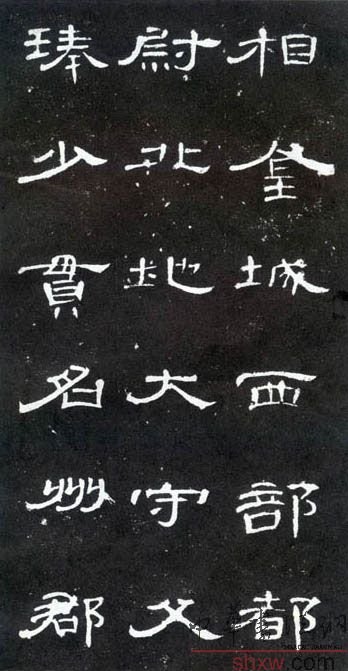 相金城西部都
尉北地大守父
琫少貫名州郡
shxw.com